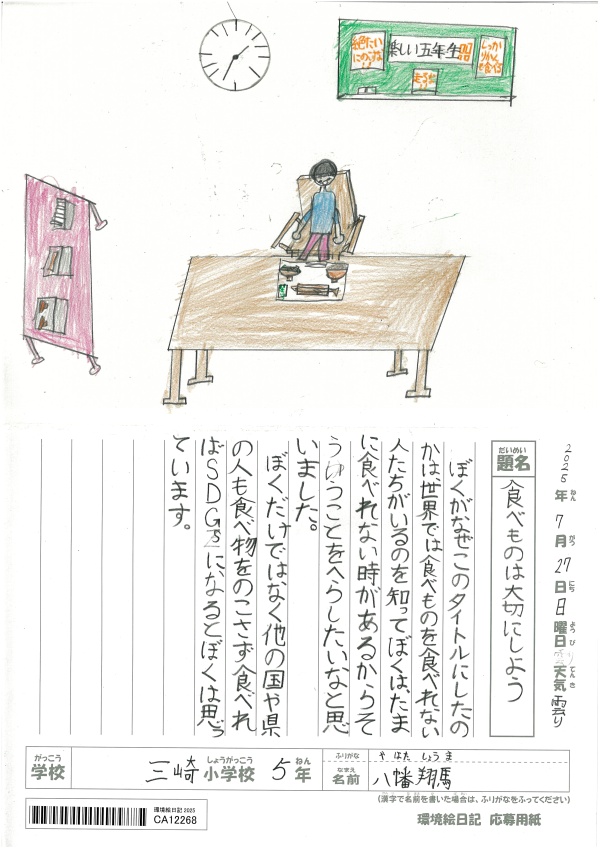 絶たい
にのこすな
!!
楽しい五年生
しっか
りかんを食べる
2025年ねん7月がつ27日にち日曜日ようび天気てんき曇り
だいめい
題名
食べものは大切にしよう
ぼくがなぜこのタイトルにしたの
かは世界では食べものを食べれない
人たちがいるのを知ってぼくは、たま
に食べれない時があるからそ
うゆうことをへらしたいなと思
いました。
ぼくだけではなく他の国や県
の人も食べ物をのこさず食べれ
ばSDGsに、なるとぼくは思っ
ています。
がっこう
学校
三崎小学校しょうがっこう5年ねん
ふりがな
やはたしょうま
なまえ
名前
八幡翔馬
(漢字で名前を書いた場合は、ふりがなをふってください)
環境絵日記 2025
CA12268
環境絵日記 応募用紙